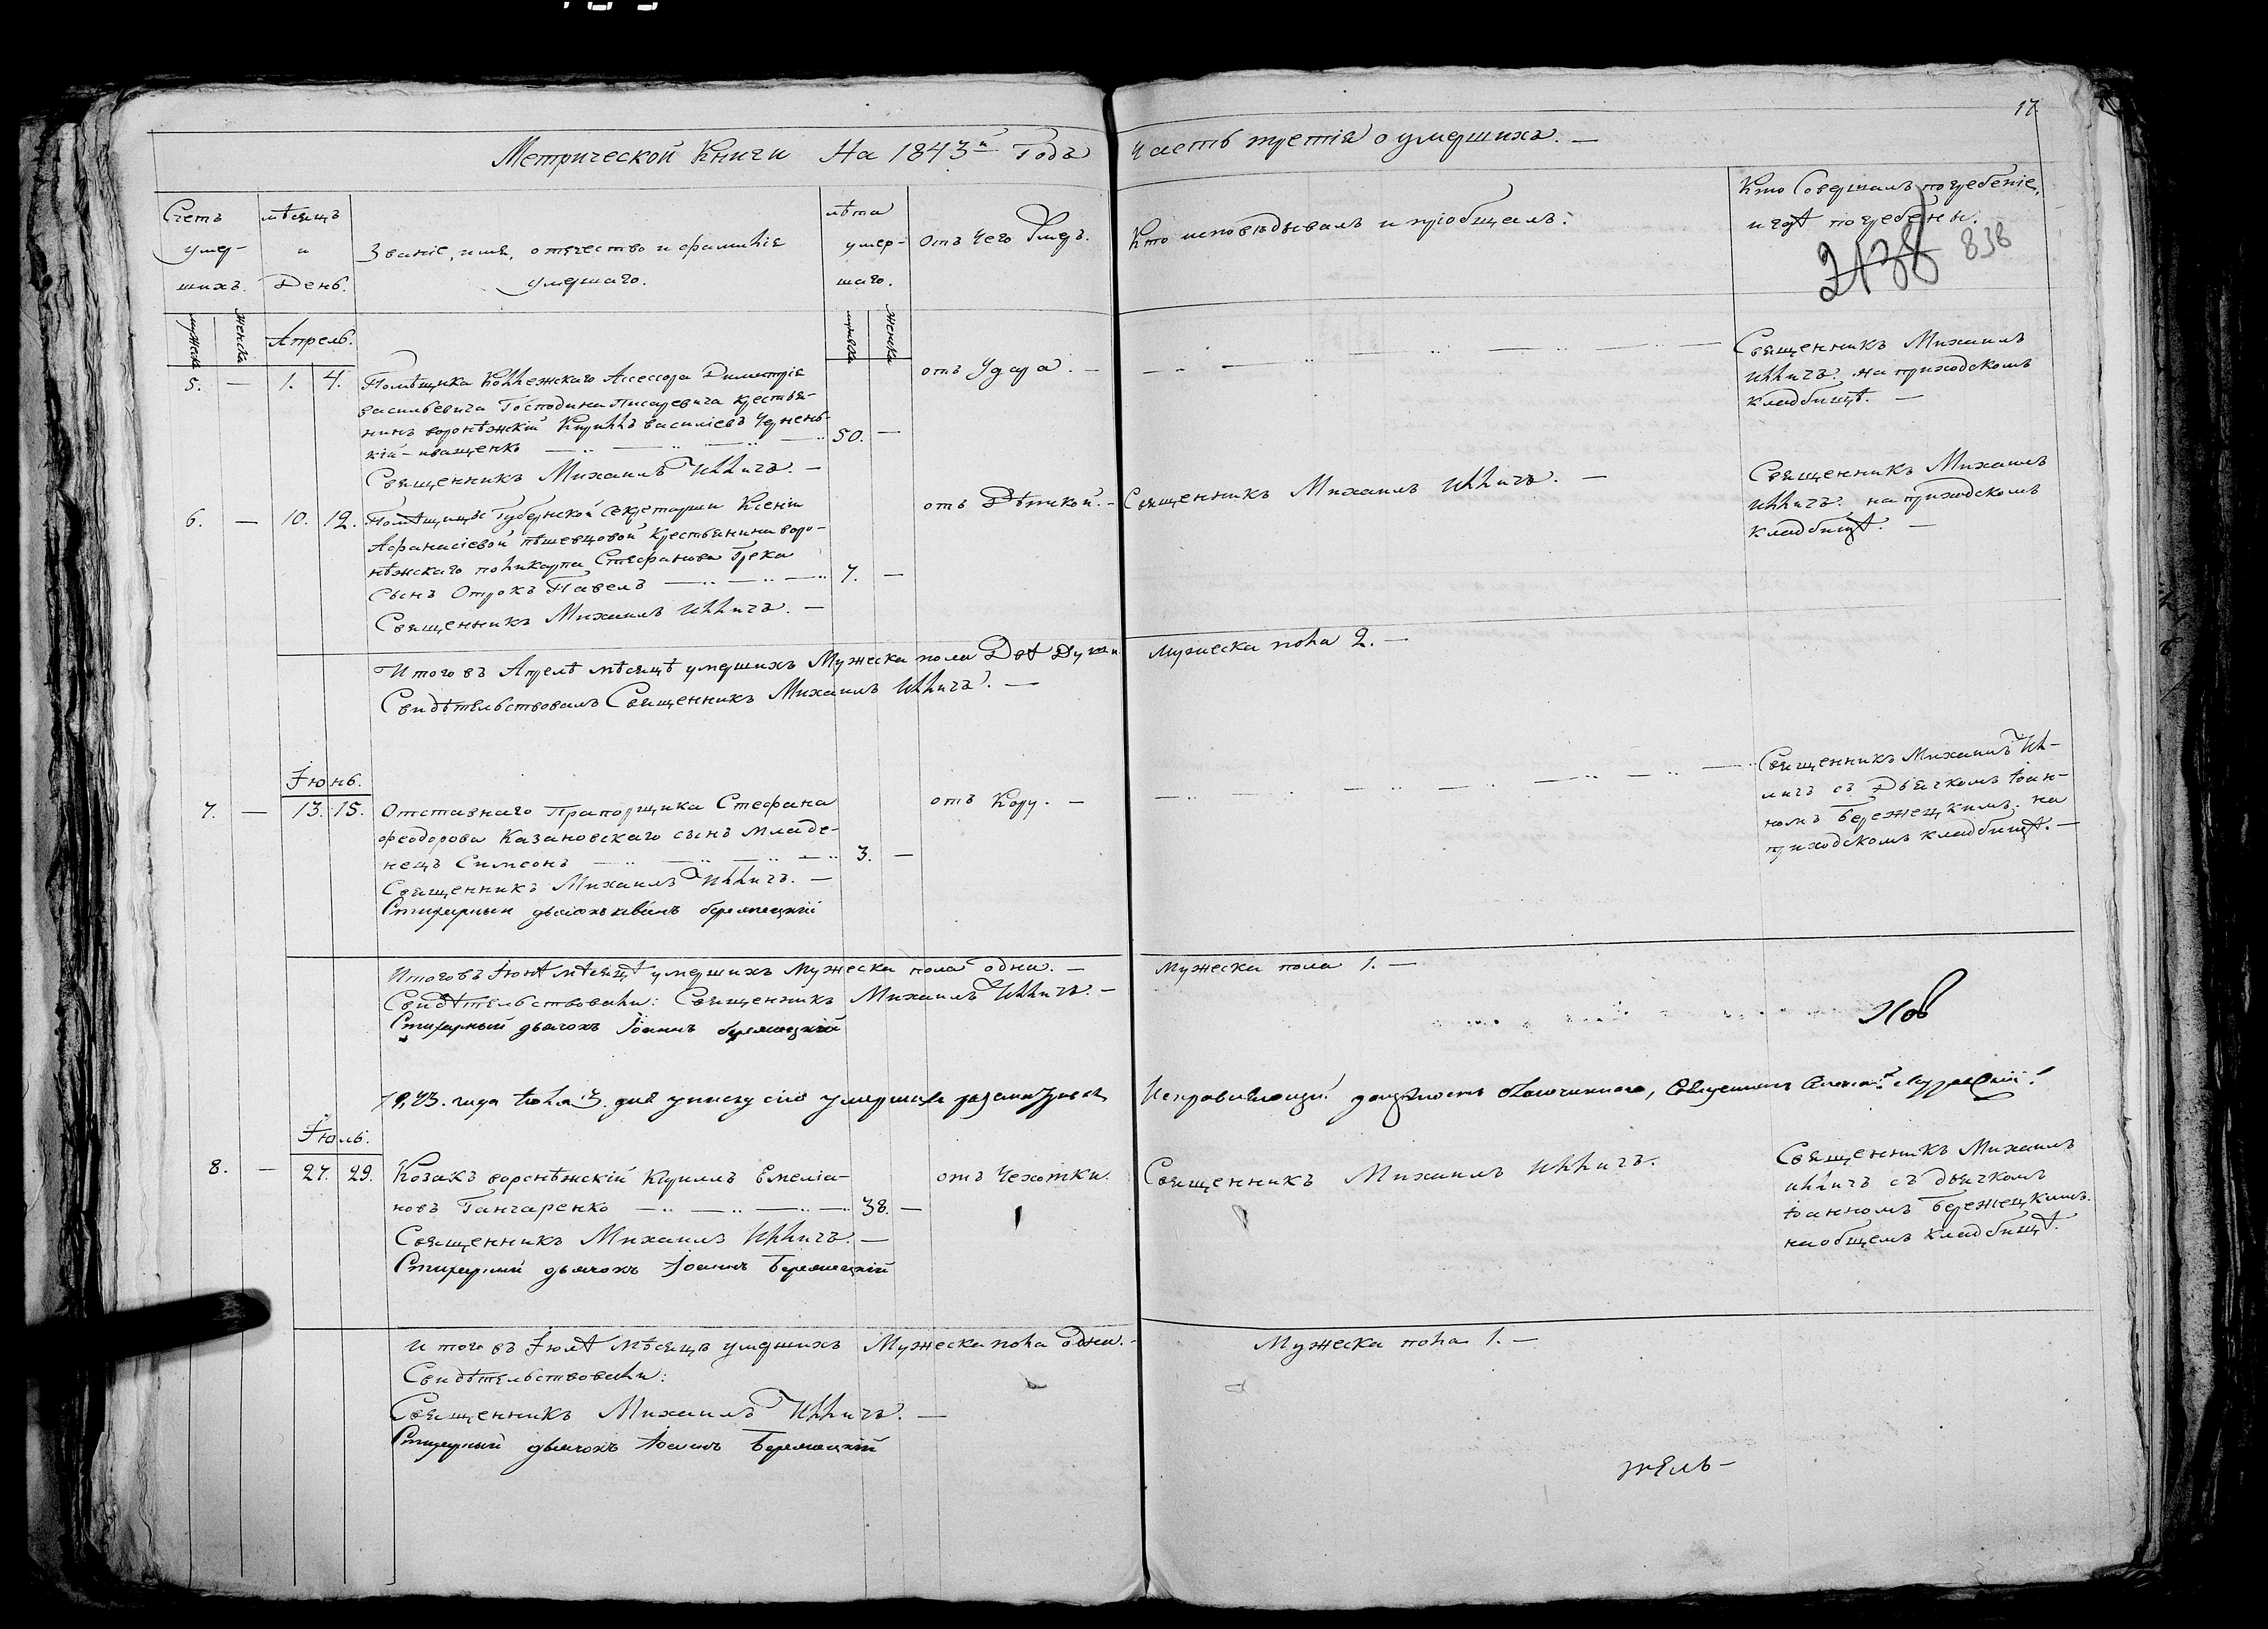 17
Метрической Книги На 1843й Годъ Часть третія о умершихъ. —
Счетъ умер- шихъ.
мѣсяцъ и День.
Званіе, имя, отечество и фамилія
умершаго.
лѣта умер- шаго.
отъ чего Умеръ.
Кто исповѣдывалъ и пріобщалъ.
Кто Совершалъ погребеніе,
и гдѣ погребены.
2138 838
мужеска женска
Апрель.
мужеска женска
5. — 1. 4.
Помѣщика Коллежскаго Ассесора Димитрія
васильевича Господина Писаревича крестья-
нинъ воронѣжскій Кириллъ василіевъ Чернень-
кій - иващенко 50. —
отъ Удара. —
Священникъ Михаилъ
Илличъ. на приходскомъ
кладбищѣ. —
Священникъ Михаилъ Илличъ. —
6. — 10. 12.
Помѣщицы Губернской секретарши Ксеніи
Афанасіевой пѣшевцовой Крестьянина воро-
нѣжскаго поликарпа Стефанова Грека
Сынъ Отрокъ Павелъ 7. —
отъ Дѣтской. —
Священникъ Михаилъ Илличъ. —
Священникъ Михаилъ
Илличъ. на приходскомъ
кладбищѣ. —
Священникъ Михаилъ Илличъ. —
Итого въ Апрелѣ мѣсяцѣ умершихъ Мужеска пола Двѣ Души
Мужеска пола 2. —
Свидѣтельствовалъ Священникъ Михаилъ Илличъ. —
Іюнь.
7. — 13. 15.
Отставнаго Прапорщика Стефана
феодорова Казановскаго сынъ младе-
нецъ Симеонъ 3. —
отъ Кору. —
Священникъ Михаилъ Ил-
личъ съ Дьячкомъ Іоан-
номъ Бережецкимъ. на
приходскомъ кладбищѣ. —
Священникъ Михаилъ Илличъ. —
Стихарный дьячокъ Іванъ бережецкій
Итого въ Іюнѣ мѣсяцѣ умершихъ Мужеска пола одна. —
Мужеска пола 1. —
Свидѣтельствовали: Священникъ Михаилъ Илличъ. —
Стихарный дьячокъ Іоаннъ бережецкій
1843. года Іюля 3. дня
умершихъ
Исправляющій должность благочиннаго, Священникъ
Іюль.
8. — 27. 29.
Козакъ воронѣжскій Кириллъ Емеліа-
новъ Ганчаренко 38. —
отъ Чехотки.
Священникъ Михаилъ Илличъ.
Священникъ Михаилъ
Илличъ съ дьячкомъ
Іоанномъ Бережецкимъ.
на общемъ Кладбищѣ.
Священникъ Михаилъ Илличъ. —
Стихарный дьячокъ Іоаннъ Бережецкій
Итого въ Іюлѣ Мѣсяцѣ умершихъ Мужеска пола одна. —
Мужеска пола 1. —
Свидѣтельствовали:
Священникъ Михаилъ Илличъ. —
Стихарный дьячокъ Іоаннъ Бережецкій